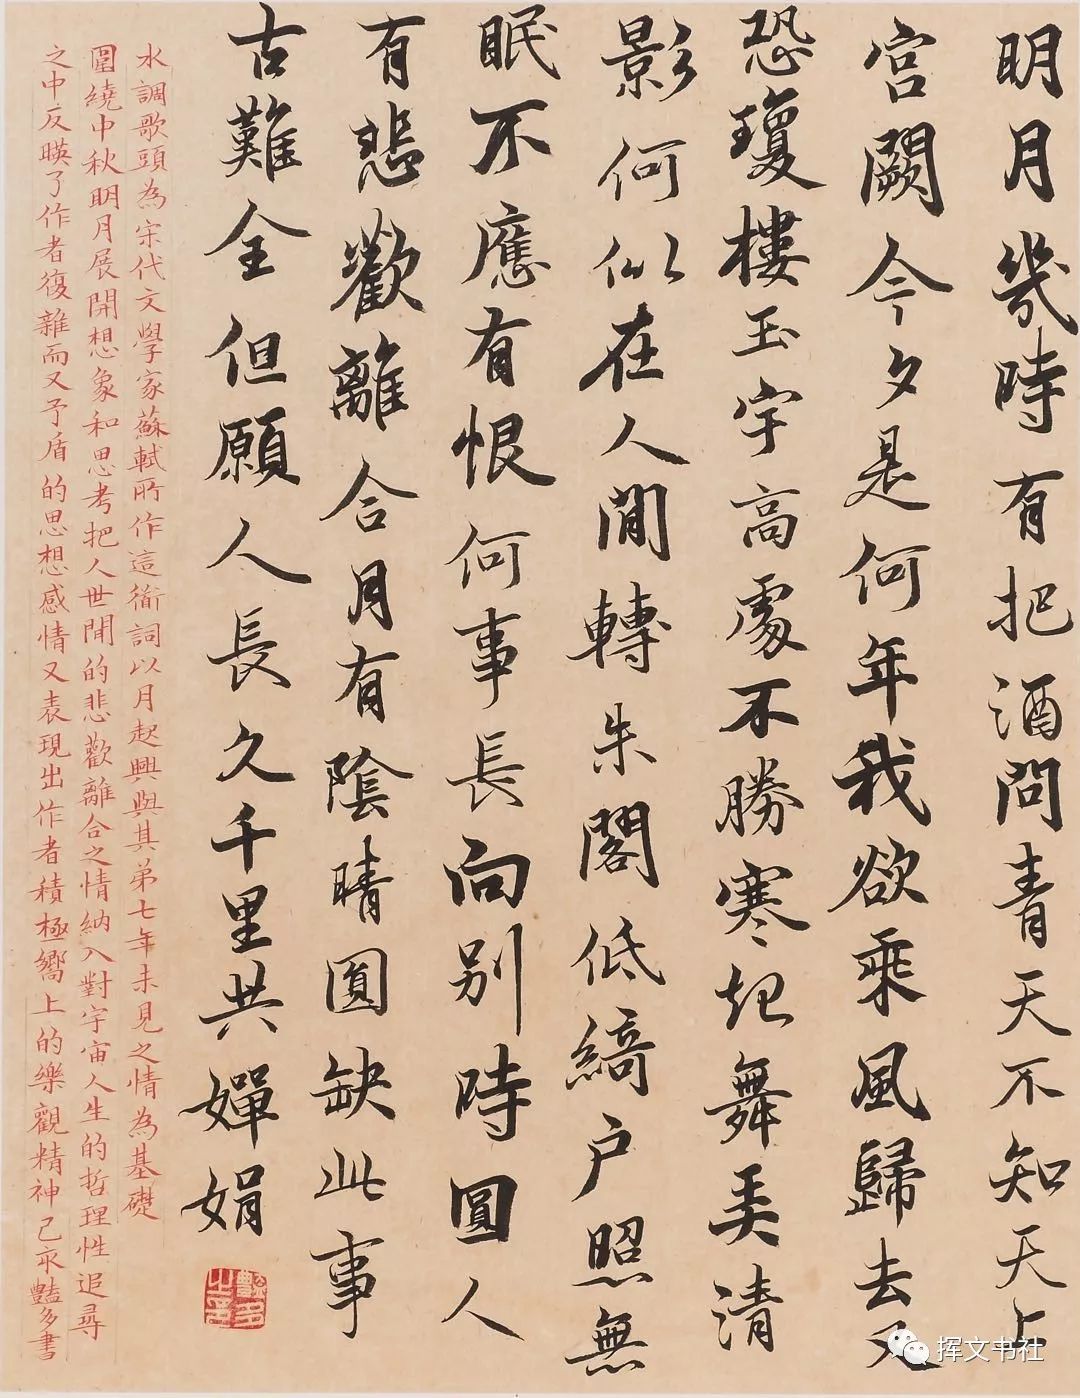 明月幾時有把酒問青天不知天上
宮闕今夕是何年我欲乘風歸去又
恐瓊樓玉宇高處不勝寒起舞弄清
影何似在人間轉朱閣低綺户照無
眠不應有恨何事長向别時圓人
有悲歡離合月有陰晴圓缺此事
古難全但願人長久千里共嬋娟
水調歌頭為宋代文學家蘇軾所作這首詞以月起興與其弟七年未見之情為基礎
圍繞中秋明月展開想象和思考把人世間的悲歡離合之情納入對宇宙人生的哲理性追尋
之中反暎了作者復雜而又予盾的思想感情又表現出作者積極嚮上的樂觀精神己亥豔多書
挥文书社